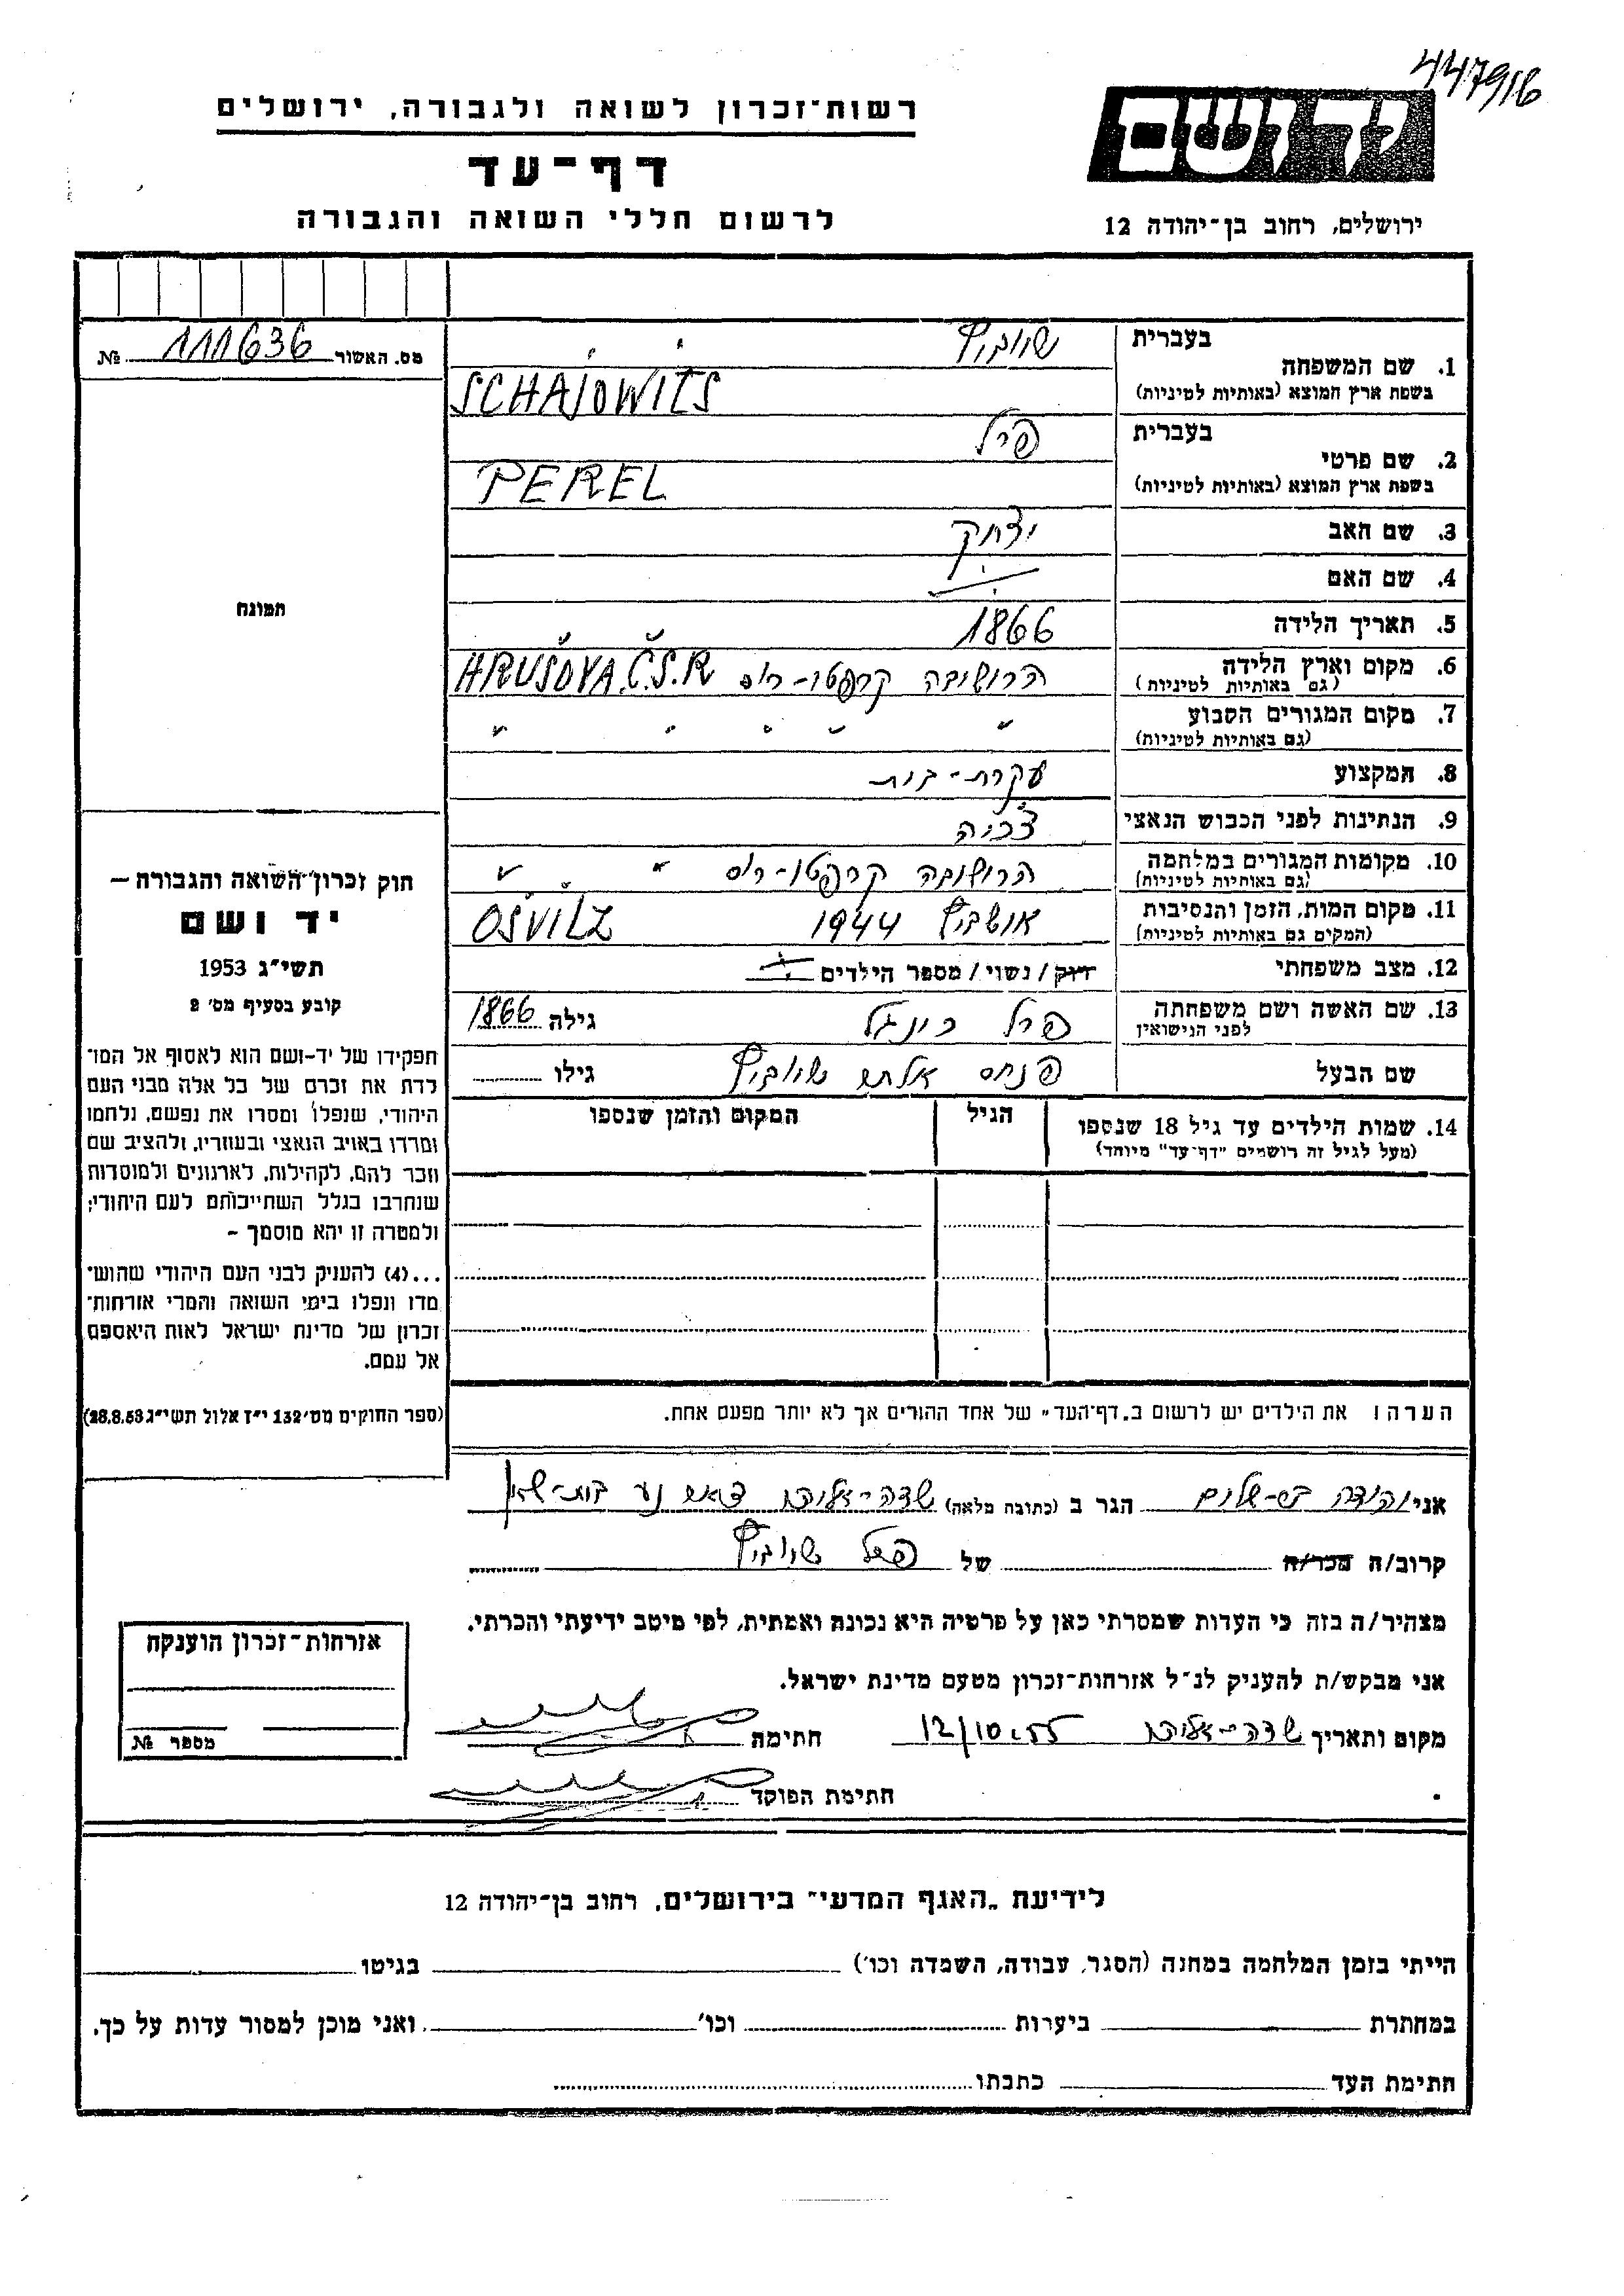 447916
רשות־זכרון לשואה ולגבורה, ירושלים
יד ושם
דף־עד
לרשום חללי השואה והגבורה
ירושלים, רחוב בן־יהודה 12
מס. האשור 111636 №
בעברית
1. שם המשפחה
בשפת ארץ המוצא (באותיות לטיניות)
SCHAJOWITS
בעברית פרל
2. שם פרטי
בשפת ארץ המוצא (באותיות לטיניות)
PEREL
3. שם האב יצחק
4. שם האם
5. תאריך הלידה 1866
6. מקום וארץ הלידה
(גם באותיות לטיניות)
קרפטו־רוס HRUŠOVA Č.S.R
7. מקום המגורים הקבוע
(גם באותיות לטיניות)
" " " " "
8. המקצוע עקרת־בית
9. הנתינות לפני הכבוש הנאצי צ'כיה
10. מקומות המגורים במלחמה
(גם באותיות לטיניות)
קרפטו־רוס " "
11. מקום המות, הזמן והנסיבות
(המקום גם באותיות לטיניות)
1944 OSVITZ
12. מצב משפחתי רוק / נשוי / מספר הילדים
13. שם האשה ושם משפחתה
לפני הנישואין
פרל גילה 1866
שם הבעל פנחס גילו
14. שמות הילדים עד גיל 18 שנספו
(מעל לגיל זה רושמים "דף־עד" מיוחד)
הגיל
המקום והזמן שנספו
הערה! את הילדים יש לרשום ב„דף־העד" של אחד ההורים אך לא יותר מפעם אחת.
תמונה
חוק זכרון השואה והגבורה —
יד ושם
תשי"ג 1953
קובע בסעיף מס' 2
תפקידו של יד־ושם הוא לאסוף אל המו־
לדת את זכרם של כל אלה מבני העם
היהודי, שנפלו ומסרו את נפשם, נלחמו
ומרדו באויב הנאצי ובעוזריו, ולהציב שם
וזכר להם, לקהילות, לארגונים ולמוסדות
שנחרבו בגלל השתייכותם לעם היהודי;
ולמטרה זו יהא מוסמך —
...(4) להעניק לבני העם היהודי שהוש־
מדו ונפלו בימי השואה והמרי אזרחות־
זכרון של מדינת ישראל לאות היאספם
אל עמם.
(ספר החוקים מס' 132 י"ז אלול תשי"ג 28.8.53)
אני יהודה בן־שלום הגר ב (כתובת מלאה) שדה־אליהו
קרוב/ה מכר/ה של פרל
מצהיר/ה בזה כי העדות שמסרתי כאן על פרטיה היא נכונה ואמתית, לפי מיטב ידיעתי והכרתי.
אני מבקש/ת להעניק לנ"ל אזרחות־זכרון מטעם מדינת ישראל.
מקום ותאריך שדה־אליהו 12/10.55 חתימה
חתימת הפוקד
אזרחות־זכרון הוענקה
מספר №
לידיעת „האגף המדעי" בירושלים, רחוב בן־יהודה 12
הייתי בזמן המלחמה במחנה (הסגר, עבודה, השמדה וכו') בגיטו
במחתרת ביערות וכו' ואני מוכן למסור עדות על כך.
חתימת העד כתבתו